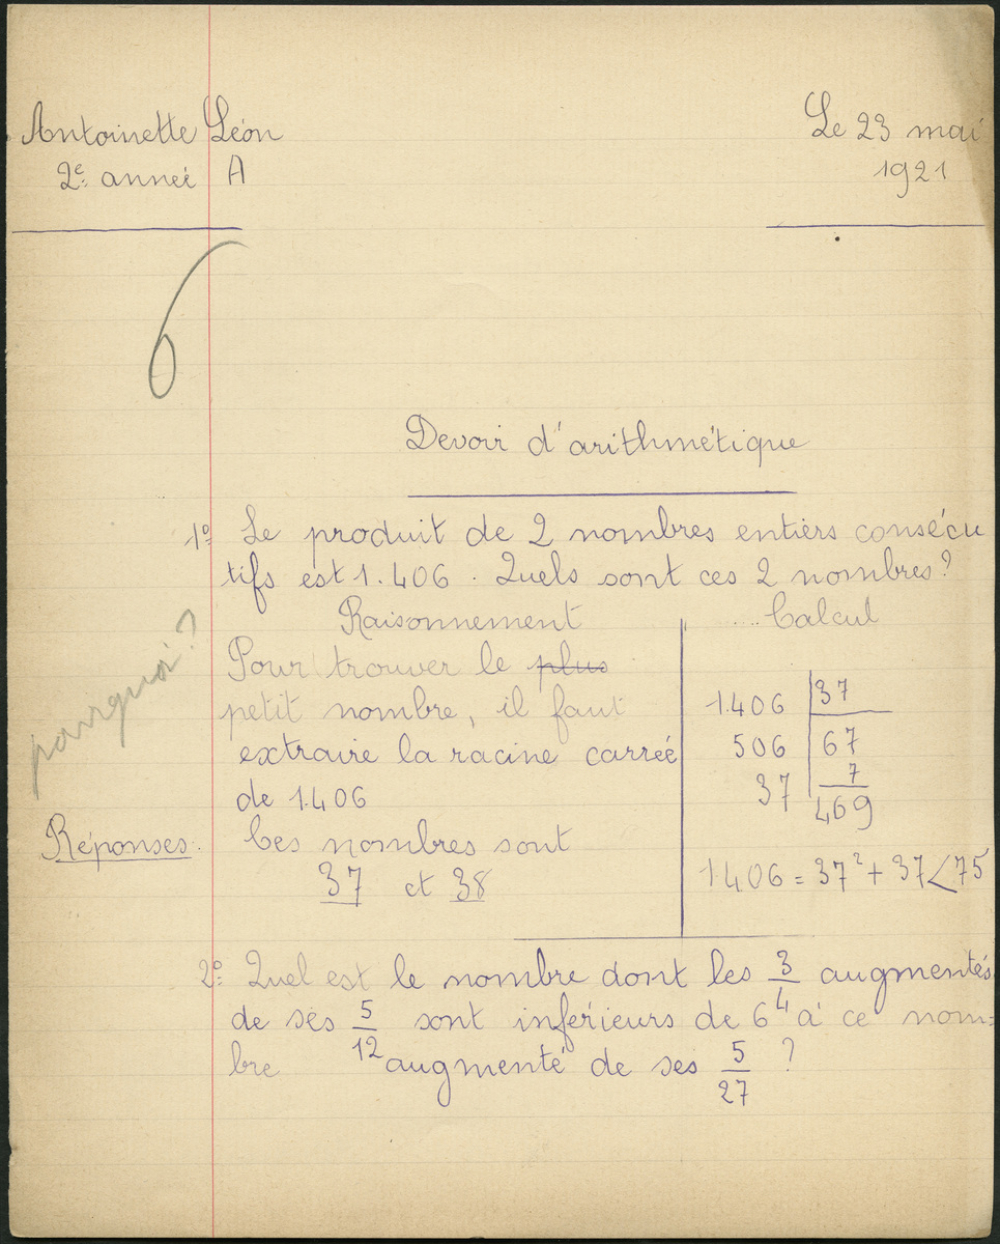 Antoinette Léon
Le 23 mai
2e année A
1921
6
Devoir d'arithmétique
1º Le produit de 2 nombres entiers consécu
tifs est 1.406. Quels sont ces 2 nombres?
Raisonnement
Calcul
pourquoi?
Pour trouver le plus
petit nombre, il faut
extraire la racine carrée
de 1.406
1.406 37
506 67
37 7
469
Réponses.
Ces nombres sont
37 et 38
1.406 = 37² + 37 < 75
2º Quel est le nombre dont les 3/4 augmentés
de ses 5/12 sont inférieurs de 6 à ce nom=
bre augmenté de ses 5/27 ?